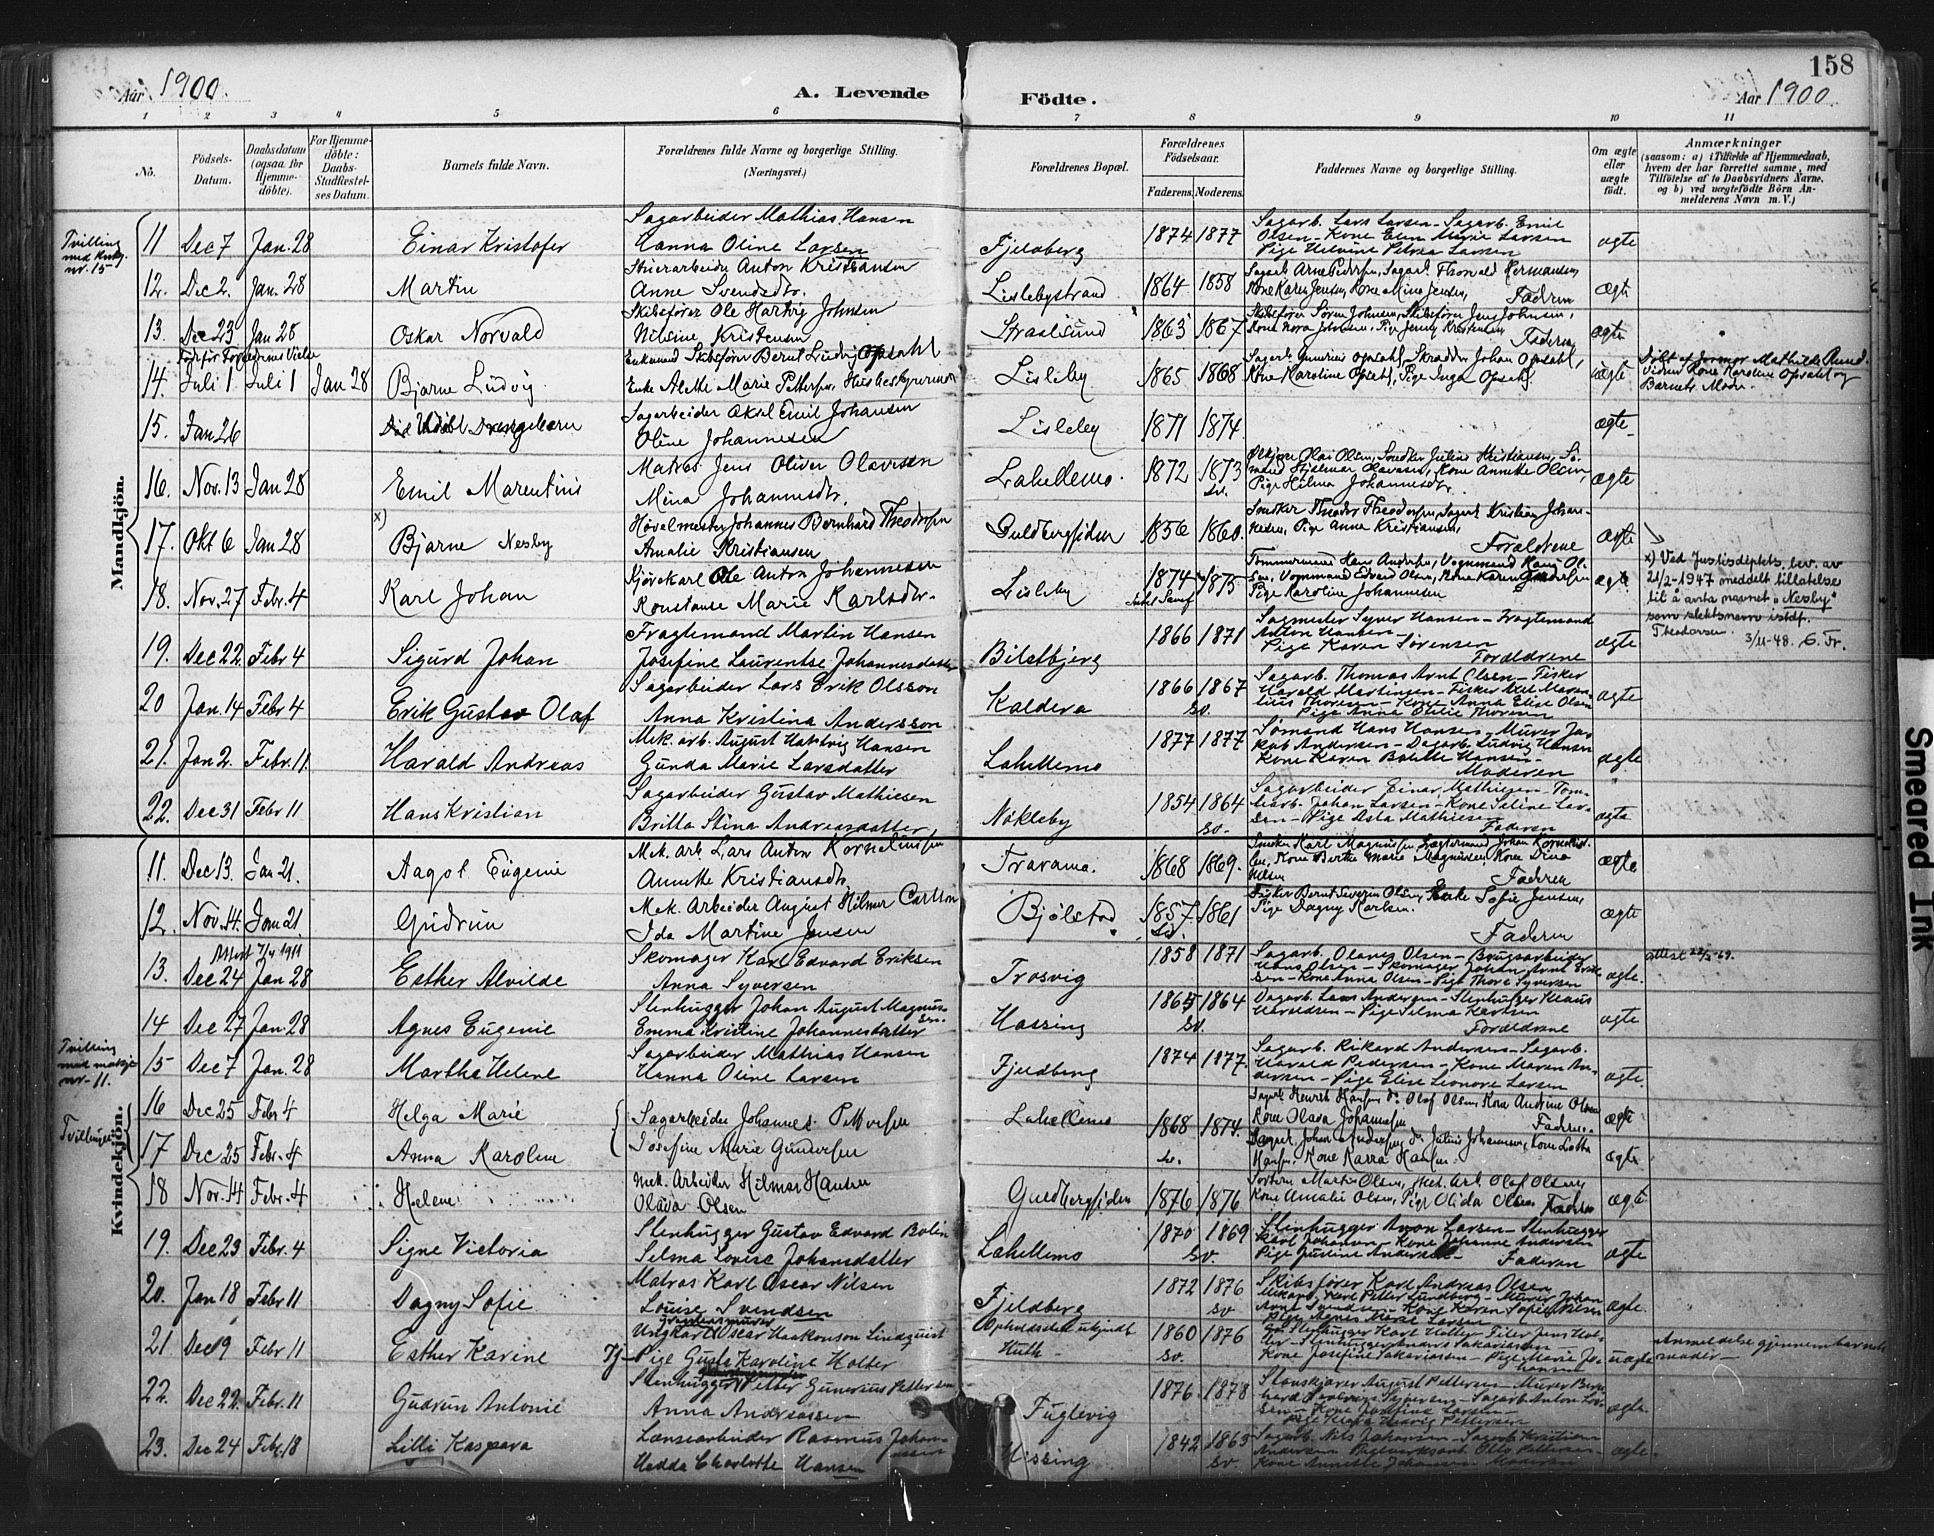 158
Aar 1900. A. Levende Födte. Aar 1900.
1 2 3 4 5 6 7 8 9 10 11
No.
Födsels-Datum.
Daabsdatum (ogsaa for Hjemme-döbte).
For Hjemme-döbte: Daabs-Stadfæstel-ses Datum.
Barnets fulde Navn.
Forældrenes fulde Navne og borgerlige Stilling. (Næringsvei.)
Forældrenes Bopæl.
Forældrenes Födselsaar. Faderens. Moderens.
Faddernes Navne og borgerlige Stilling.
Om ægte eller uægte födt.
Anmærkninger
(saasom: a) i Tilfælde af Hjemmedaab, hvem der har forrettet samme, med Tilföielse af to Daabsvidners Navne, og b) ved uægtefödte Börn An-melderens Navn m. V.)
Mandkjön.
Tvilling med kvkj. nr. 15
11 Dec 7 Jan. 28 Einar Kristofer
Sagarbeider Mathias Hansen
Hanna Oline Larsen
Fjeldberg 1874 1877
Sagarb. Lars Larsen - Sagarb. Emil
Olsen - Kone Elen Marie Larsen
Pige Helvine Petrea Larsen
ægte
12. Dec 2. Jan. 28 Martin
Anton Kristiansen
Anne Svendsdtr.
Lislebystrand 1864 1858
Kone Karen Jensen, Kone Mina Jensen, Faderen
ægte
13. Dec 23 Jan 28 Oskar Norvald
Skibsfører Ole Hartvig Johnsen
Nilsine Kristensen
Straalsund 1863 1867
Skibsfører Søren Johnsen, Skibsfører Jens Johnsen,
Kone Nora Johnsen, Pige Jenny Kristensen Faderen
ægte
Født før Forældrenes Vielse
14. Juli 1. Juli 1 Jan 28 Bjarne Ludvig
Enkemand Skibsfører Bernt Ludvig Opsahl
Enke Alette Marie Pettersen, Husbestyrerinde
Lisleby 1865 1868
Sagarb. Gunerius Opsahl, Skrædder Johan Opsahl,
Kone Karoline Opsahl, Pige Inga Opsahl
uægte
Døbt af Jormor Mathilde Rund.
Vidner Kone Karoline Opsahl og
Barnets Moder.
15. Jan 26 Udøbt Drengebarn
Sagarbeider Aksel Emil Johansen
Oline Johannesen
Lisleby 1871 1874
ægte
16. Nov. 13 Jan 28 Emil Marentius
Matros Jens Oliver Olavesen
Mina Johannesdtr.
Lahellemo. 1872 1873 Sv.
Olai Olsen, Snedker Julius Kristiansen, Sø-
mand Hjelmar Olavesen, Kone Annette Olsen,
Pige Hilma Johannesdtr.
ægte
17. Okt 6 Jan 28 x) Bjarne Nesby
Høvelmester Johannes Bernhard Theodorsen
Amalie Kristiansen
Guldbergsiden 1856 1860.
Snedker Theodor Theodorsen, Sagarb. Kristian Johan-
nesen, Pige Anne Kristiansen,
Forældrene
ægte
x) Ved Justisdeptets brev av
21/2-1947 meddelt tillatelse
til å anta navnet „Nesby"
som slektsnavn istdf.
Theodorsen. 3/11-48. E. Fr.
18. Nov. 27 Febr. 4 Karl Johan
Kjørekarl Ole Anton Johannesen
Konstanse Marie Karlsdtr.
Lisleby 1874 1875
Tømmermand Hans Andersen, Vognmand Hans Ol-
sen, Vognmand Edvard Olsen, Kone Karen Gundersen
Pige Karoline Johannesen
ægte
19. Dec 22. Febr 4 Sigurd Johan
Fragtemand Martin Hansen
Josefine Laurentse Johannesdatter
Biletbjerg 1866 1871
Sagmester Syver Hansen - Fragtemand
Anton Hansen -
Pige Karen Sørensen
Forældrene
ægte
20 Jan. 14 Febr 4 Erik Gustav Olaf
Sagarbeider Lars Erik Olsson
Anna Kristina Andersson
Kaldera 1866 1867 Sv.
Sagarb. Thomas Arnt Olsen - Fisker
Harald Martinsen - Fisker Axel Maren-
lius Thoresen - Kone Anna Elise Olsen
Pige Anna Othilie Thoresen
ægte
21. Jan 2. Febr. 11 Harald Andreas
Mek. arb. August Hartvig Hansen
Gunda Marie Larsdatter
Lahellemo 1877 1877
Sømand Hans Hansen - Murer Ja-
kob Andersen - Dagarb. Ludvig Hansen
Kone Karen Bolette Hansen -
Moderen
ægte
22. Dec 31 Febr 11 Hans Kristian
Sagarbeider Gustav Mathiesen
Britta Stina Andreasdatter
Nøkleby 1854 1864 Sv.
Sagarbeider Einar Mathiesen - Tøm-
merarb. Johan Larsen - Kone Seline Lar-
sen - Pige Asta Mathiesen
Faderen
ægte
Kvindekjön.
11. Dec 13. Jan 21. Aagot Eugenie
Mek. Arb. Lars Anton Korneliussen
Annette Kristiansdtr.
Trarama. 1868 1869.
Smeden Karl Magnussen, Johan Kornelius-
sen, Kone Berthe Marie Magnussen, Kone Dina
Nilsen Faderen
ægte
12. Nov. 14. Jan 21 Gudrun
Mek. Arbeider August Hilmer Carlson
Ida Martine Jensen
Bjølstad 1857. 1861 Sv.
Fisker Bernt Severin Olsen, Enke Sofie Jensen,
Pige Dagny Karlsen.
Faderen
ægte
Attest 7/4 1911
13. Dec 24 Jan 28 Esther Alvilde
Skomager Karl Edvard Eriksen
Anna Syversen
Trosvig 1858 1871
Sagarb. Olave Olsen - Brugsarbeider
Hans Olsen - Skomager Johan Arnt Erik-
sen - Kone Anna Olsen - Pige Thora Syversen
ægte.
14 Dec 27 Jan. 28 Agnes Eugenie
Stenhugger Johan August Magnus-
sen.
Emma Kristine Johannesdatter
Hassing 1865 1864 Sv.
Dagarb. Lars Andersen - Stenhugger Klaus
Haraldsen - Pige Selma Karlsen
Forældrene
ægte
Tvilling med mandkj. nr. 11.
15 Dec 7 Jan. 28 Martha Helene
Sagarbeider Mathias Hansen
Hanna Oline Larsen
Fjeldberg 1874 1877.
Sagarb. Rikard Andersen - Sagarb.
Harald Pedersen - Kone Maren An-
dersen - Pige Elise Leonore Larsen
ægte.
Tvillinger
16 Dec 25 Febr 4 Helga Marie
17 Dec 25 Febr. 4 Anna Karoline
Sagarbeider Johannes Pettersen
Josefine Marie Gundersen
Lahellemo 1868 1874. Sv.
Sagarb. Henrik Hansen, do Olaf Olsen, Kone Andrine Olsen
Kone Olava Johannesen Faderen.
ægte
Sagarb. Johan Andersen, do Julius Johannesen, Kone Lotta
Hansen, Kone Karra Hansen.
ægte
18 Nov. 14 Febr. 4 Helene
Mek. Arbeider Hilmar Hansen
Olava Olsen
Guldbergsiden 1876 1876
Martin Olsen, Mek. Arb. Olaf Olsen,
Kone Amalie Olsen, Pige Olida Olsen Faderen
ægte
19. Dec 23 Febr. 4 Signe Victoria
Stenhugger Gustav Edvard Bolin
Selma Lovise Johansdatter
Lahellemo 1870 1869 Sv.
Stenhugger Aron Larsen - Stenhugger
Karl Johansen - Kone Johanne Andersen
Pige Justine Andersen - Faderen
ægte
20. Jan 18 Febr 11 Dagny Sofie
Matros Karl Oscar Nilsen
Louise Svendsen
Fjeldberg 1872 1876 Sv
Skibsfører Karl Andreas Olsen
Karl Petter Lundberg - Murer Johan
Arnt Svendsen - Kone Karen Sofie Nilsen
Pige Agnes Marie Larsen
ægte.
21. Dec 9 Febr 11 Esther Karine
Ungkarl Oscar Haakonson Lindquist
Tj - Pige Gusta Karoline Holter
Opholdssted ukjendt
Huth 1860 1876 Sv.
Stenhugger Karl Holter - Filer Jens Hol-
ter - Stenhugger Anders Sakariassen -
Kone Josefine Sakariassen - Pige Marie Jo-
hansen
uægte
Anmeldelse gjennem barnets
moder -
22. Dec 22. Febr. 11 Gudrun Antonie
Stenhugger Petter Gunerius Pettersen
Anna Andreassen
Fuglevig 1876. 1878
August Pettersen - Murer Bern-
hard - Sagarb. Anton Lar-
sen - Kone Josefine Larsen -
Pige Klara Hedvig Pettersen
ægte.
23. Dec 24 Feb. 18 Lilli Kaspara
Lænsearbeider Rasmus Johan-
nesen
Hedda Charlotte Hansen
Hissing 1842 1863 Sv.
Sagarb. Nils Johansen - Sagarb. Kristian
Andersen Teglverksarb. Otto Pettersen -
Kone Annette Johansen Moderen
ægte.
Smeared Ink